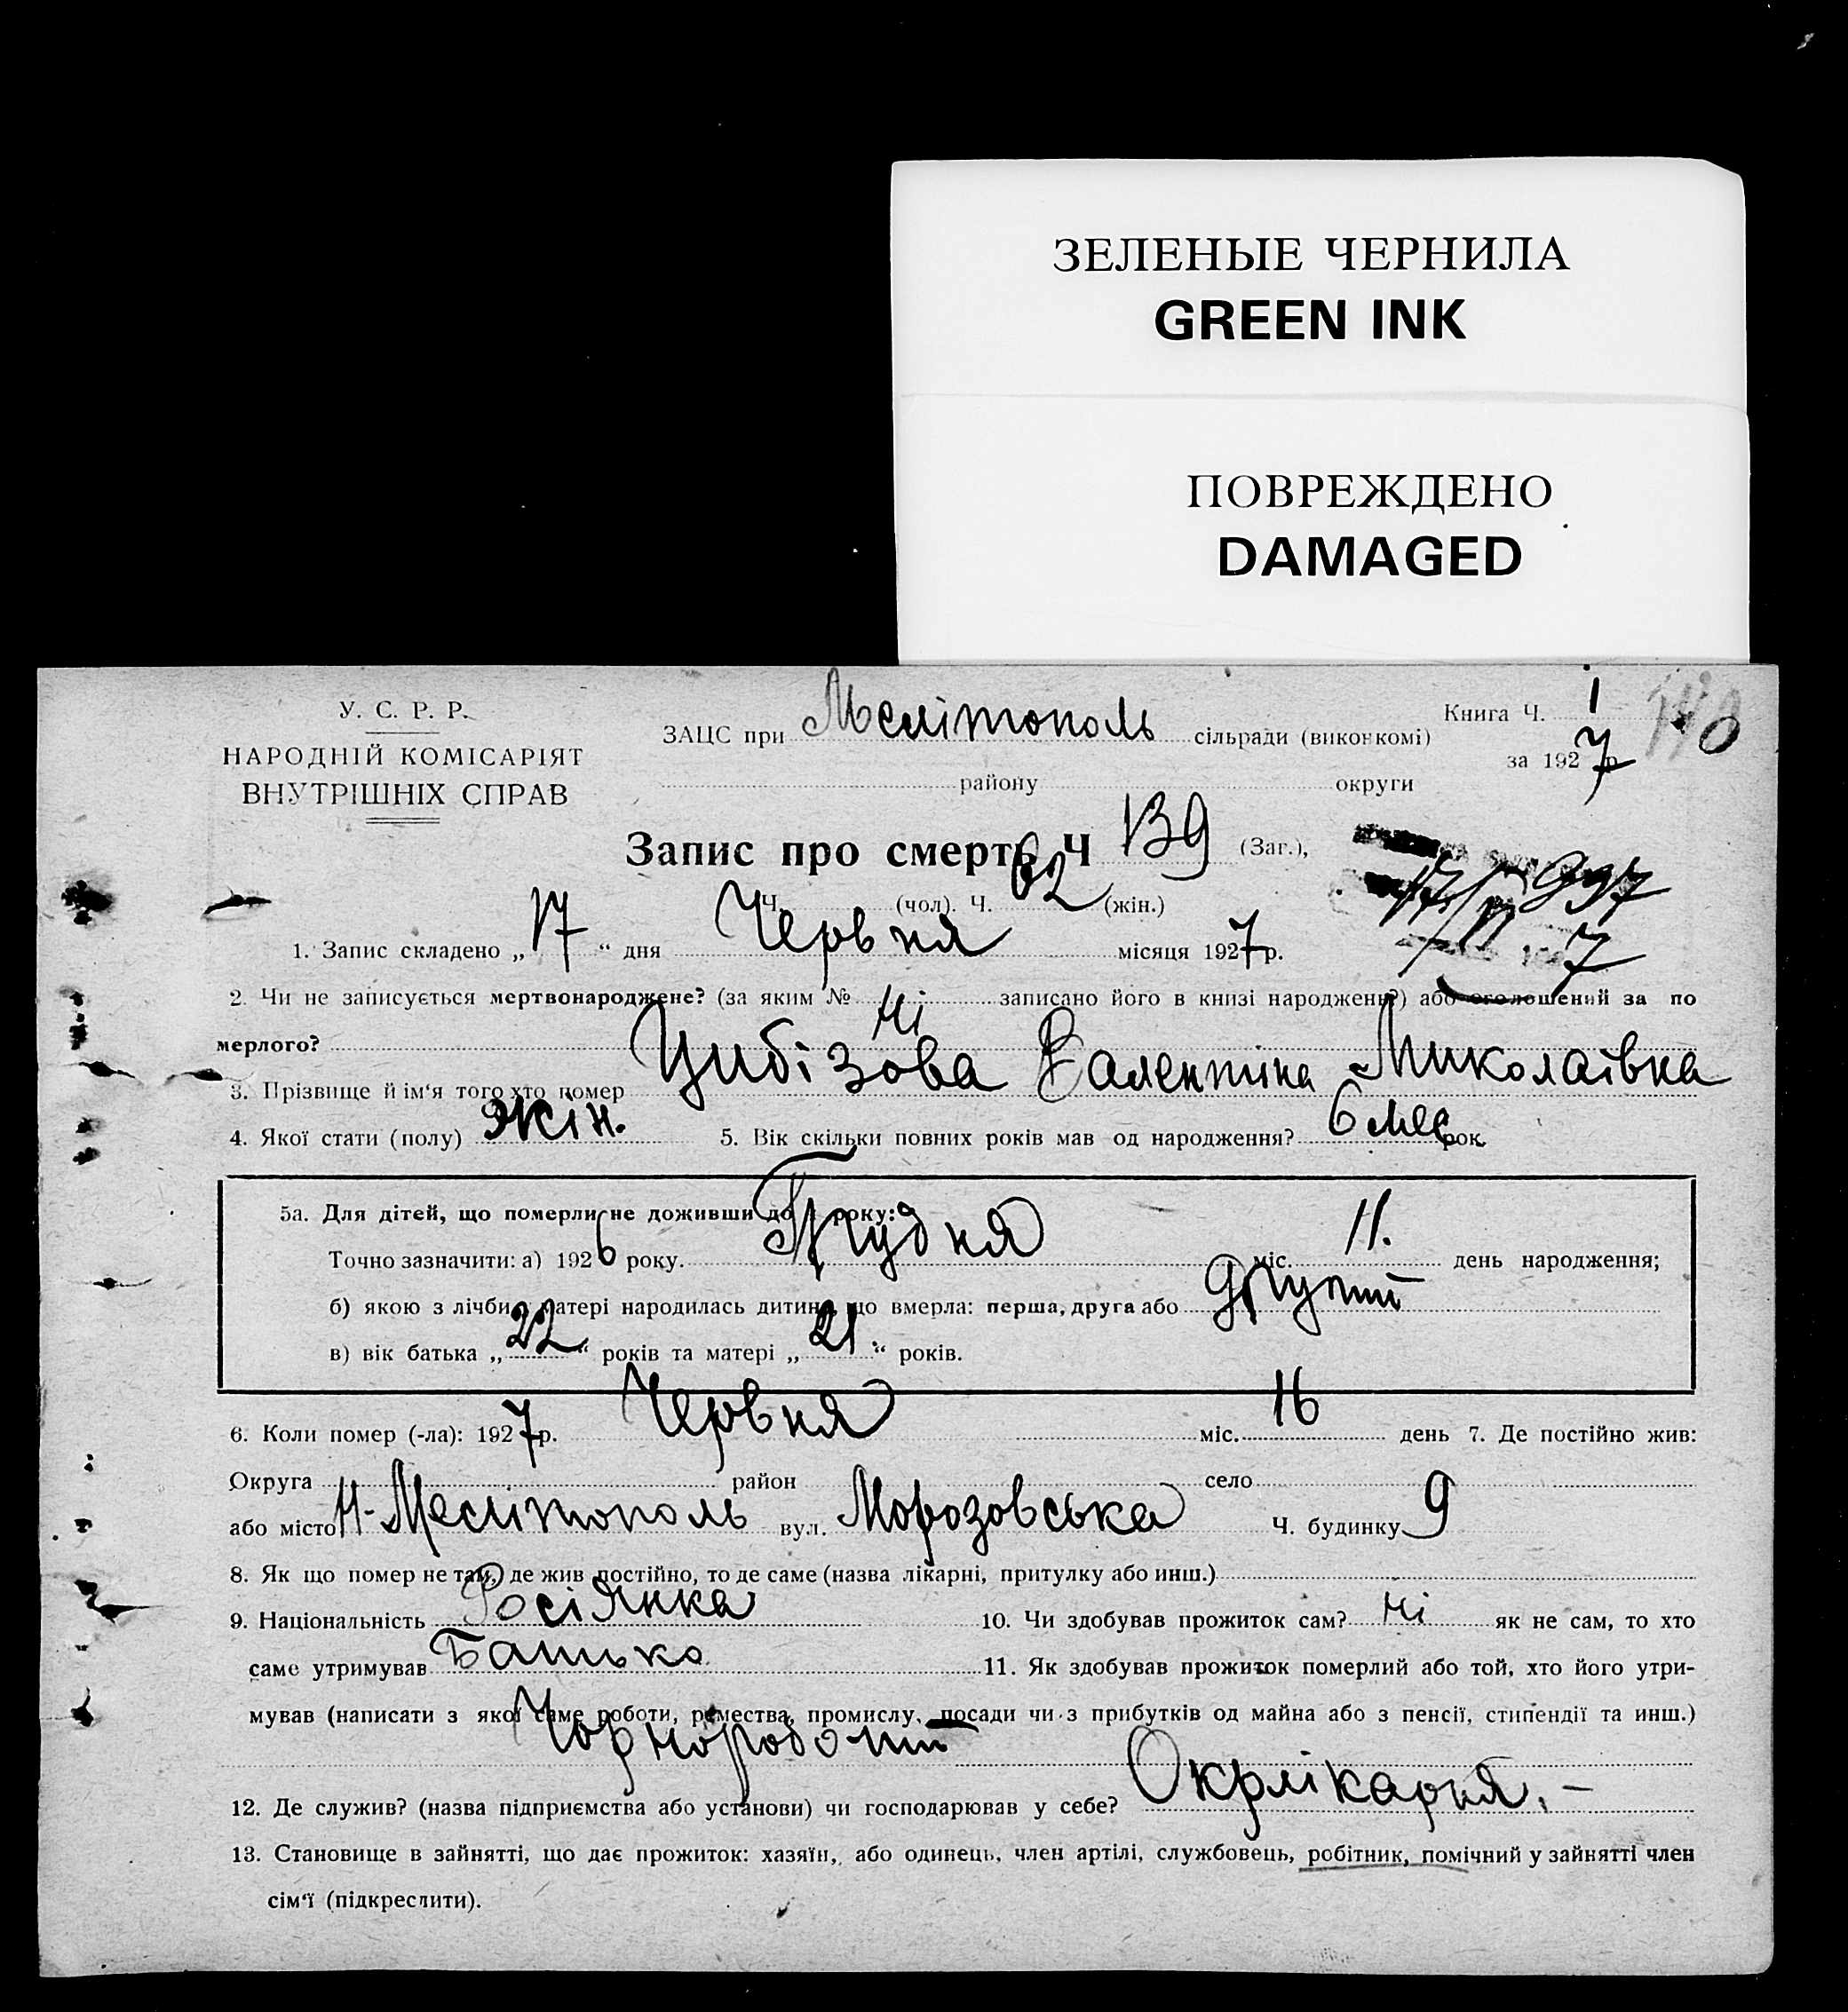 ЗЕЛЕНЫЕ ЧЕРНИЛА
GREEN INK
ПОВРЕЖДЕНО
DAMAGED
У. С. Р. Р.
НАРОДНІЙ КОМІСАРІЯТ
ВНУТРІШНІХ СПРАВ
ЗАЦС при Мелітополь сільради (виконкомі)
району округи
Книга Ч. 1
за 1927 р.
Запис про смерть Ч 139 (Заг.),
Ч. (чол). Ч. 62 (жін.)
1. Запис складено „17“ дня Червня місяця 1927 р.
2. Чи не записується мертвонароджене? (за яким № Ні записано його в книзі народжень?) або оголошений за по
мерлого?
3. Прізвище й ім'я того хто помер Цибізова Валентіна Миколаівна
4. Якої стати (полу) жін. 5. Вік скільки повних років мав од народження? 6 мес рок
5а. Для дітей, що померли не доживши до 1 року:
Точно зазначити: а) 1926 року. Грудня міс. 11. день народження;
б) якою з лічби у матері народилась дитина, що вмерла: перша, друга або другий
в) вік батька „22“ років та матері „21“ років.
6. Коли помер (-ла): 1927 р. Червня міс. 16 день 7. Де постійно жив:
Округа район село
або місто Н-Мелітополь вул. Морозовська Ч. будинку 9
8. Як що помер не там, де жив постійно, то де саме (назва лікарні, притулку або инш.)
9. Національність Росіянка 10. Чи здобував прожиток сам? Ні як не сам, то хто
саме утримував Батько 11. Як здобував прожиток померлий або той, хто його утри-
мував (написати з якої саме роботи, ремества, промислу, посади чи з прибутків од майна або з пенсії, стипендії та инш.)
Чорноробочий
12. Де служив? (назва підприємства або установи) чи господарював у себе? Окрлікарня. –
13. Становище в зайнятті, що дає прожиток: хазяїн, або одинець, член артілі, службовець, робітник, помічний у зайнятті член
сім'ї (підкреслити).